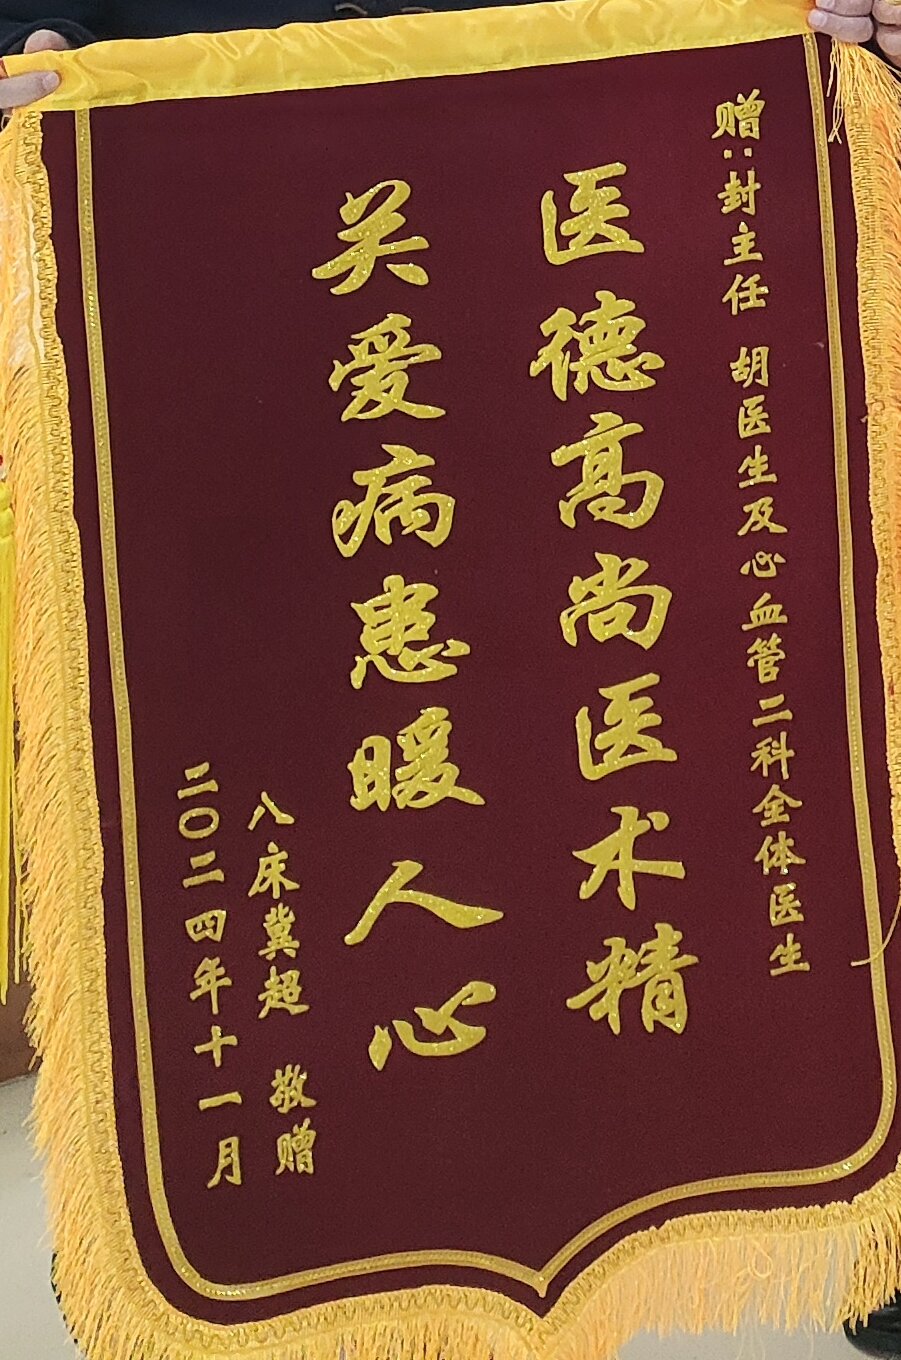 赠:封主任 胡医生及心血管二科全体医生
医德高尚医术精
关爱病患暖人心
八床冀超 敬赠
二〇二四年十一月